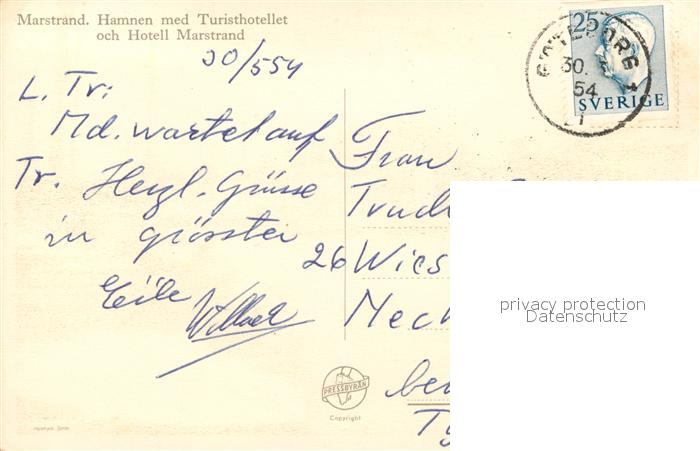 Marstrand. Hamnen med Turisthotellet
och Hotell Marstrand
30/5 54
L. Tr:
Md. wartet auf
Tr. Herzl. Grüsse
in grösster
Eile
Frau
Trud
26 Wies
Mech
bei
Ty
25
SVERIGE
GÖTEBORG
30. 5
54
privacy protection
Datenschutz
PRESSBYRÅN
Copyright